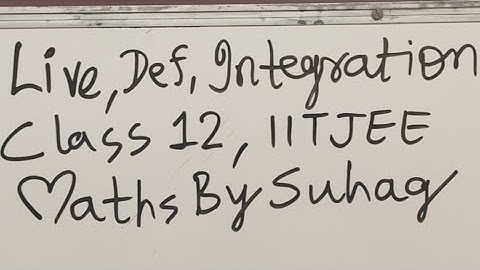 Live, Def, Integration
Class 12, IITJEE
Maths By Suhag